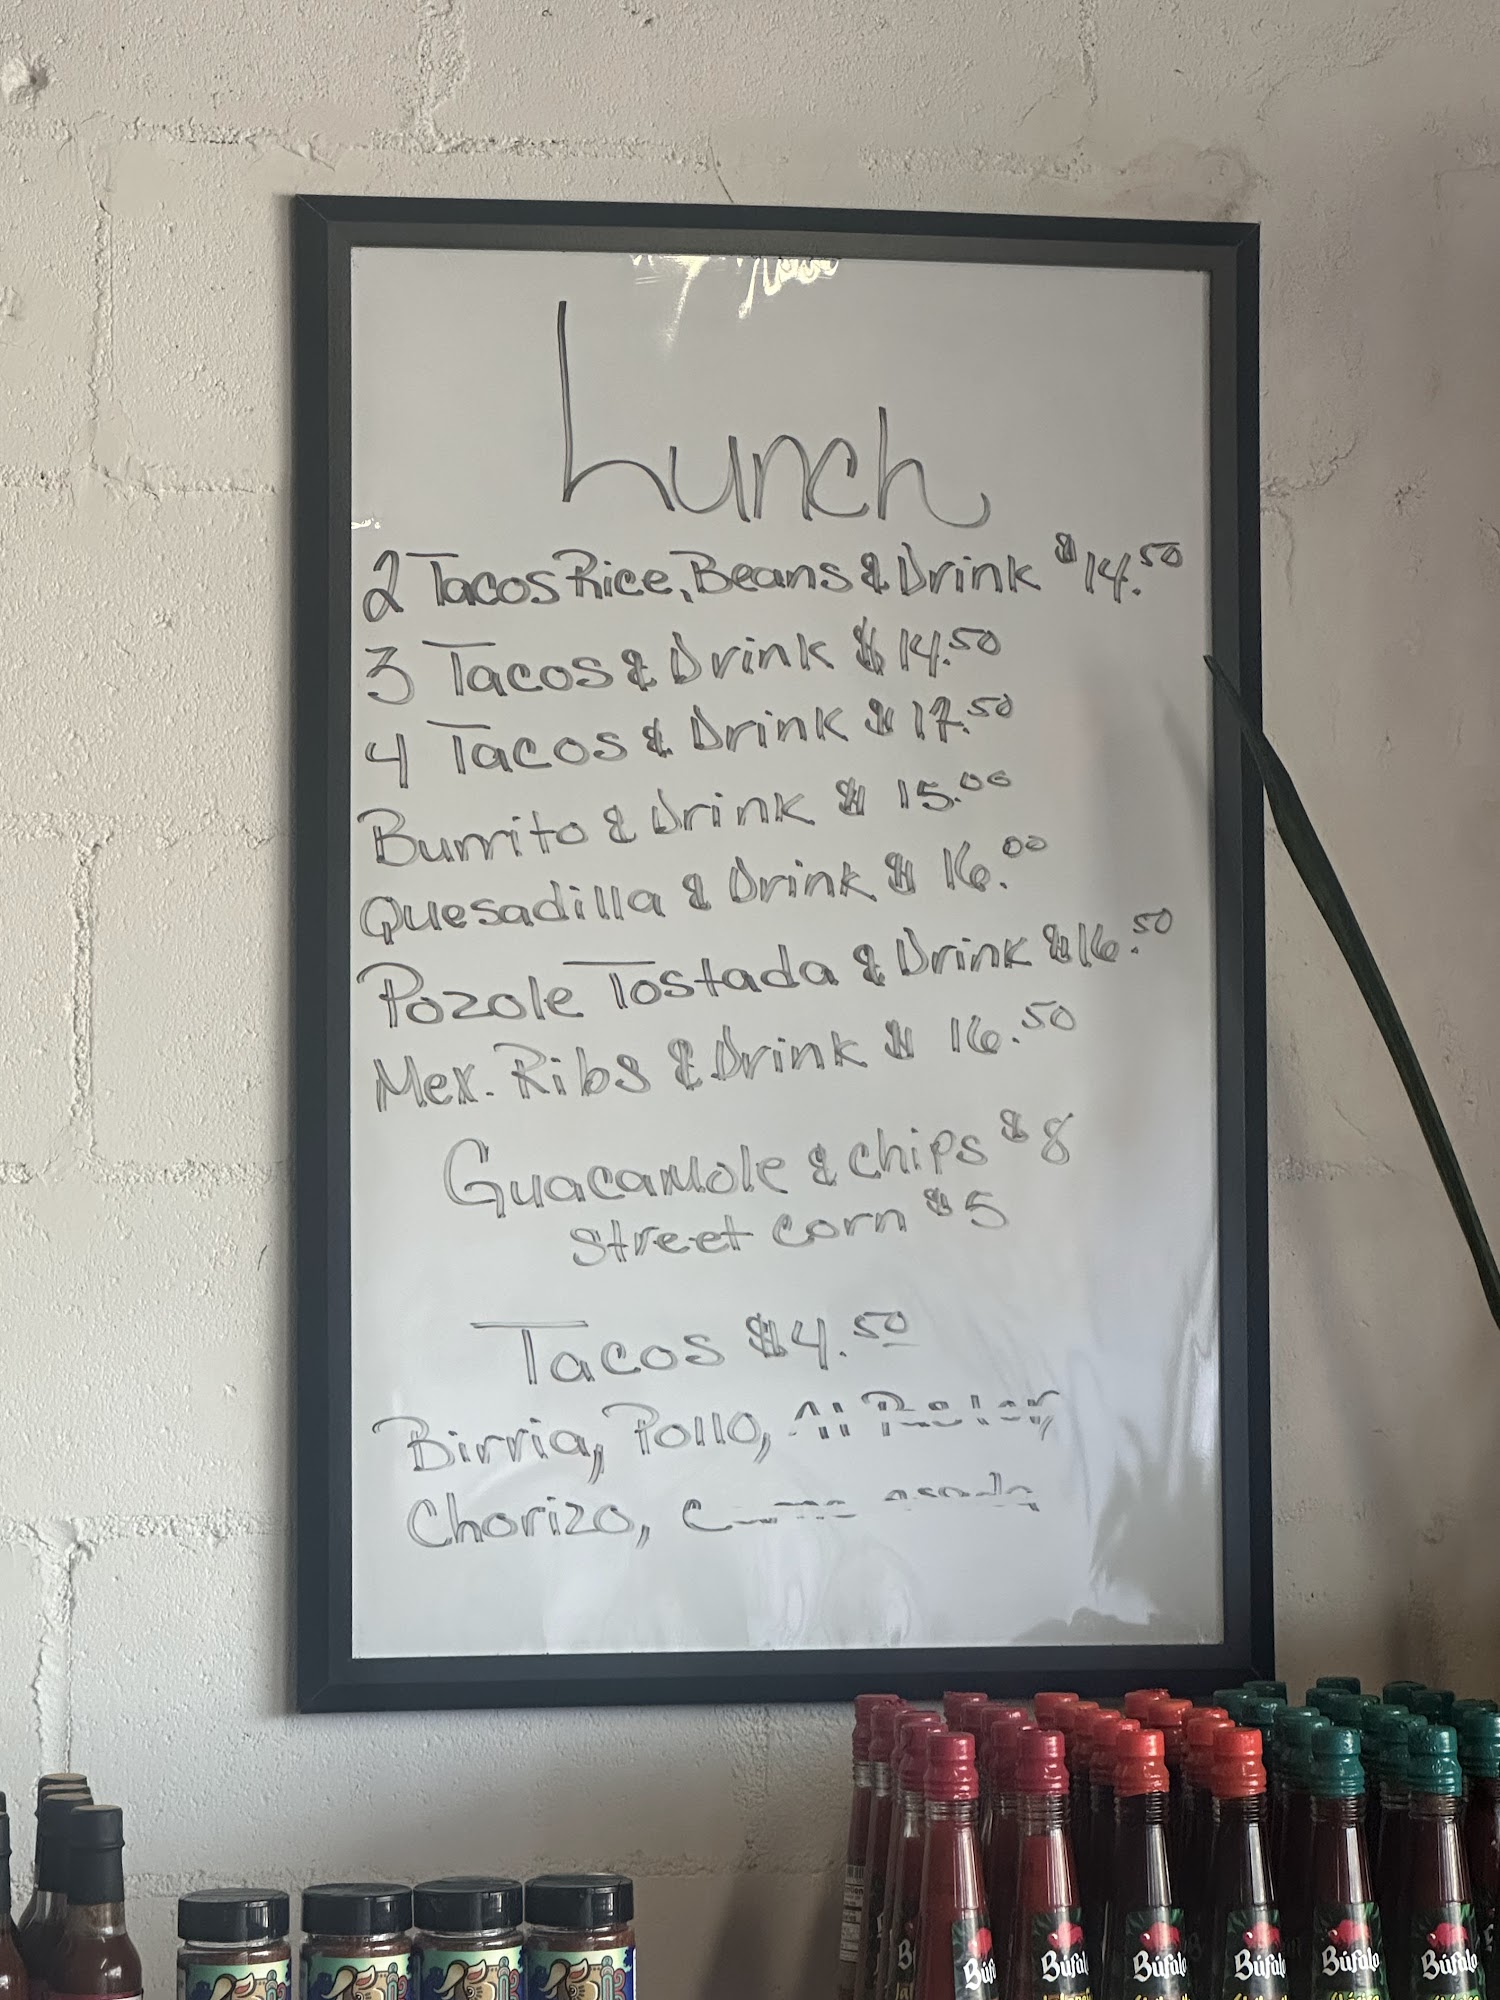 Lunch
2 Tacos Rice, Beans & Drink $14.50
3 Tacos & Drink $14.50
4 Tacos & Drink $17.50
Burrito & Drink $15.00
Quesadilla & Drink $16.00
Pozole Tostada & Drink $16.50
Mex. Ribs & Drink $16.50
Guacamole & chips $8
Street corn $5
Tacos $4.50
Birria, Pollo, Al Pastor,
Chorizo, Carne asada
Búfalo
Búfalo
Búfalo
Búfalo
Búfalo